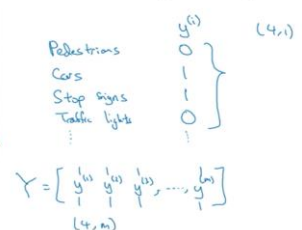 y^(i) (4,1)
Pedestrians 0
Cars 1
Stop signs 1
Traffic lights 0
⋮ ⋮
Y = [ y^(1) y^(2) y^(3), ..., y^(m) ]
(4, m)